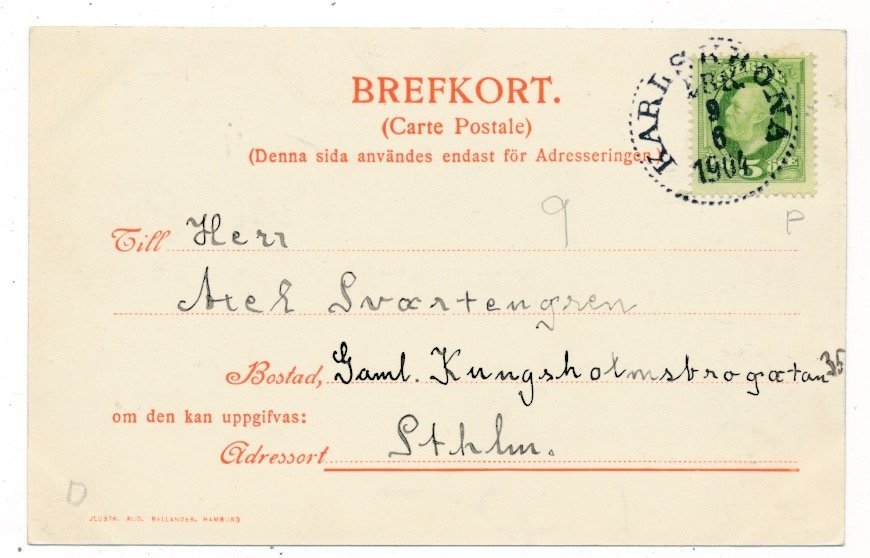 BREFKORT.
(Carte Postale)
(Denna sida användes endast för Adresseringen.)
KARLSKRONA
9
6
1904
5
9
P
Till Herr
Axel Svartengren
Bostad, Gaml. Kungsholmsbrogatan 35
om den kan uppgifvas:
Adressort Sthlm.
D